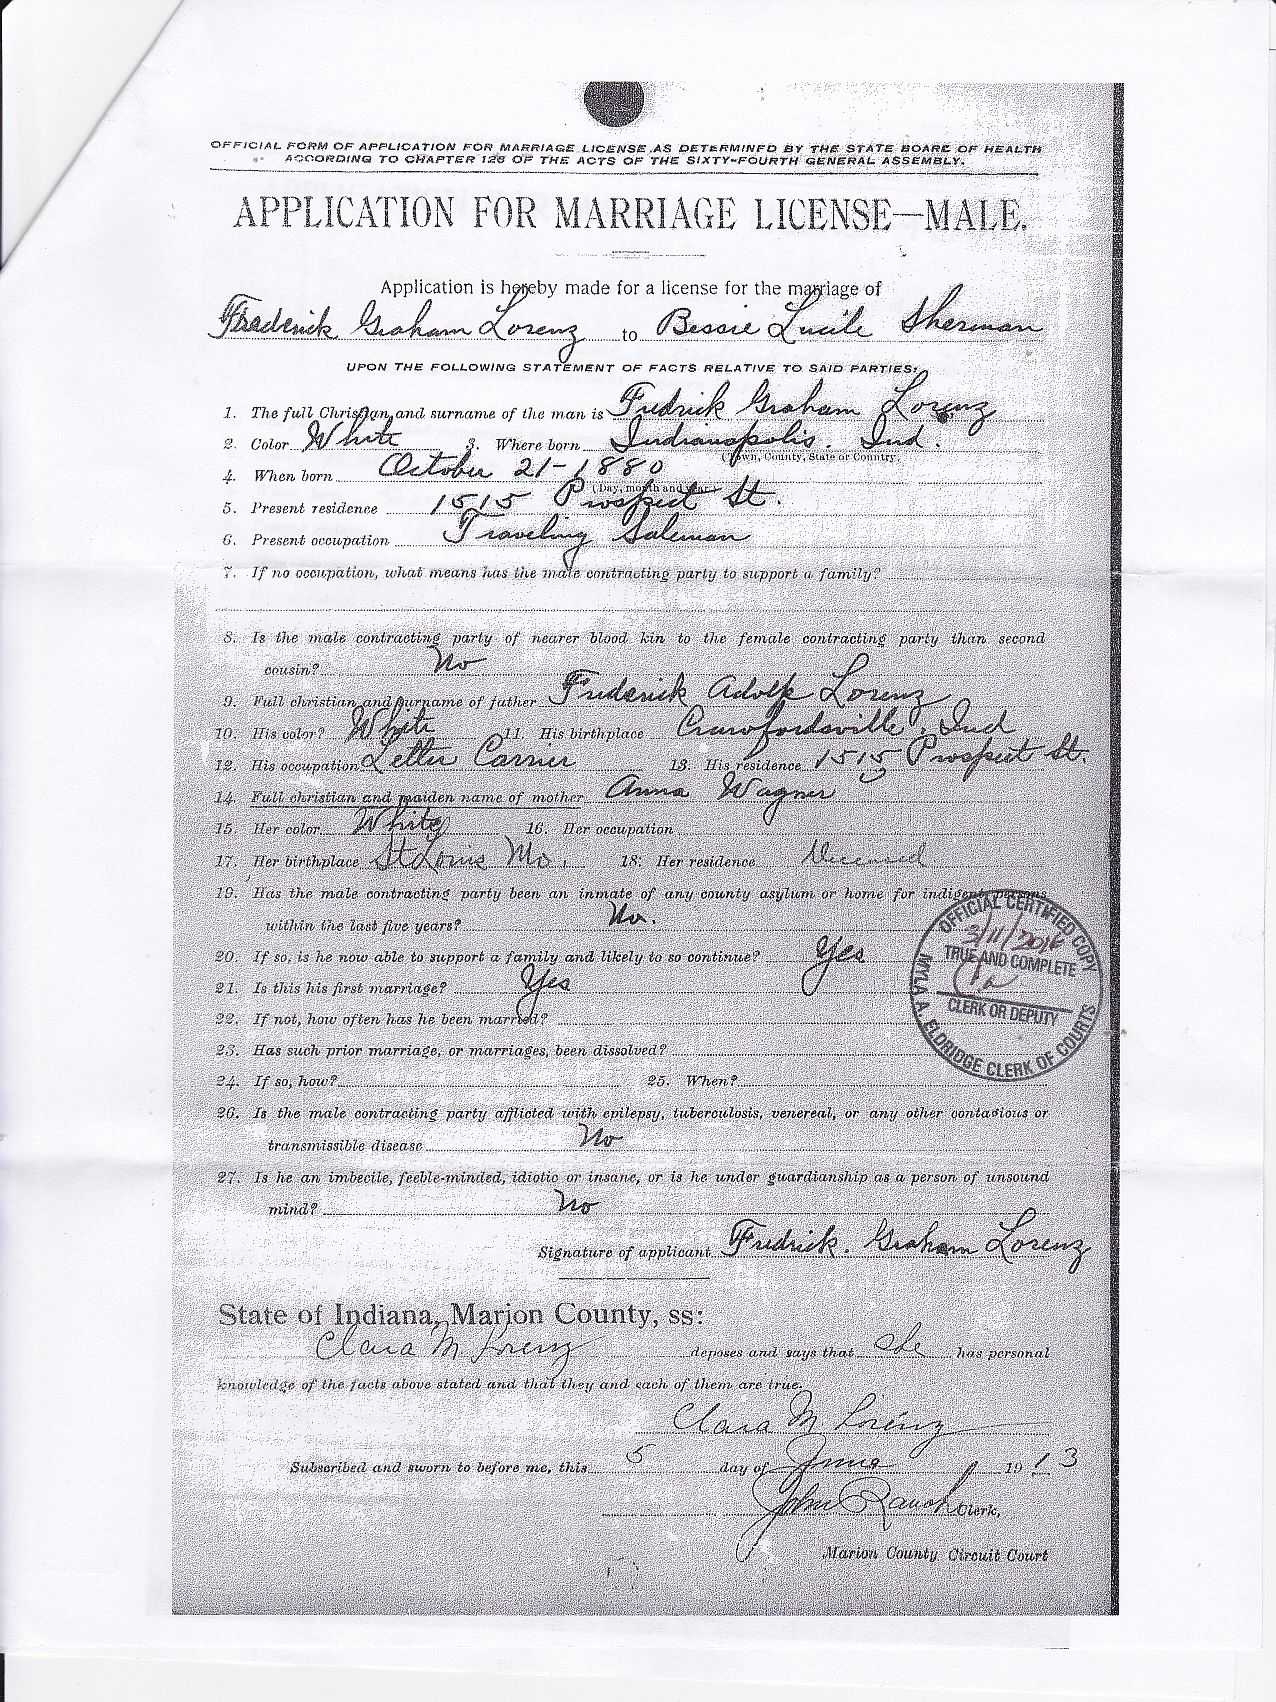 OFFICIAL FORM OF APPLICATION FOR MARRIAGE LICENSE AS DETERMINED BY THE STATE BOARD OF HEALTH
ACCORDING TO CHAPTER 126 OF THE ACTS OF THE SIXTY-FOURTH GENERAL ASSEMBLY.
APPLICATION FOR MARRIAGE LICENSE—MALE.
Application is hereby made for a license for the marriage of
Frederick Graham Lorenz to Bessie Lucile Sherman
UPON THE FOLLOWING STATEMENT OF FACTS RELATIVE TO SAID PARTIES:
1. The full Christian and surname of the man is Fredrick Graham Lorenz
2. Color White 3. Where born Indianapolis. Ind.
(Town, County, State or Country
4. When born October 21-1880
(Day, month and year
5. Present residence 1515 Prospect St.
6. Present occupation Traveling Salesman
7. If no occupation, what means has the male contracting party to support a family?
8. Is the male contracting party of nearer blood kin to the female contracting party than second
cousin? No
9. Full christian and surname of father Frederick Adolf Lorenz
10. His color? White 11. His birthplace Crawfordsville, Ind
12. His occupation Letter Carrier 13. His residence 1515 Prospect St.
14. Full christian and maiden name of mother Anna Wagner
15. Her color White 16. Her occupation
17. Her birthplace St Louis Mo. 18. Her residence Deceased
19. Has the male contracting party been an inmate of any county asylum or home for indigent persons
within the last five years? No.
20. If so, is he now able to support a family and likely to so continue? Yes
21. Is this his first marriage? Yes
22. If not, how often has he been married?
23. Has such prior marriage, or marriages, been dissolved?
24. If so, how? 25. When?
26. Is the male contracting party afflicted with epilepsy, tuberculosis, venereal, or any other contagious or
transmissible disease No
27. Is he an imbecile, feeble-minded, idiotic or insane, or is he under guardianship as a person of unsound
mind? No
Signature of applicant Fredrick. Graham Lorenz
OFFICIAL CERTIFIED COPY
3/11/2016
TRUE AND COMPLETE
CLERK OR DEPUTY
MYLA A. ELDRIDGE CLERK OF COURTS
State of Indiana, Marion County, ss:
Clara M Lorenz deposes and says that she has personal
knowledge of the facts above stated and that they and each of them are true.
Clara M Lorenz
Subscribed and sworn to before me, this 5 day of June 1913
John Rauch Clerk,
Marion County Circuit Court